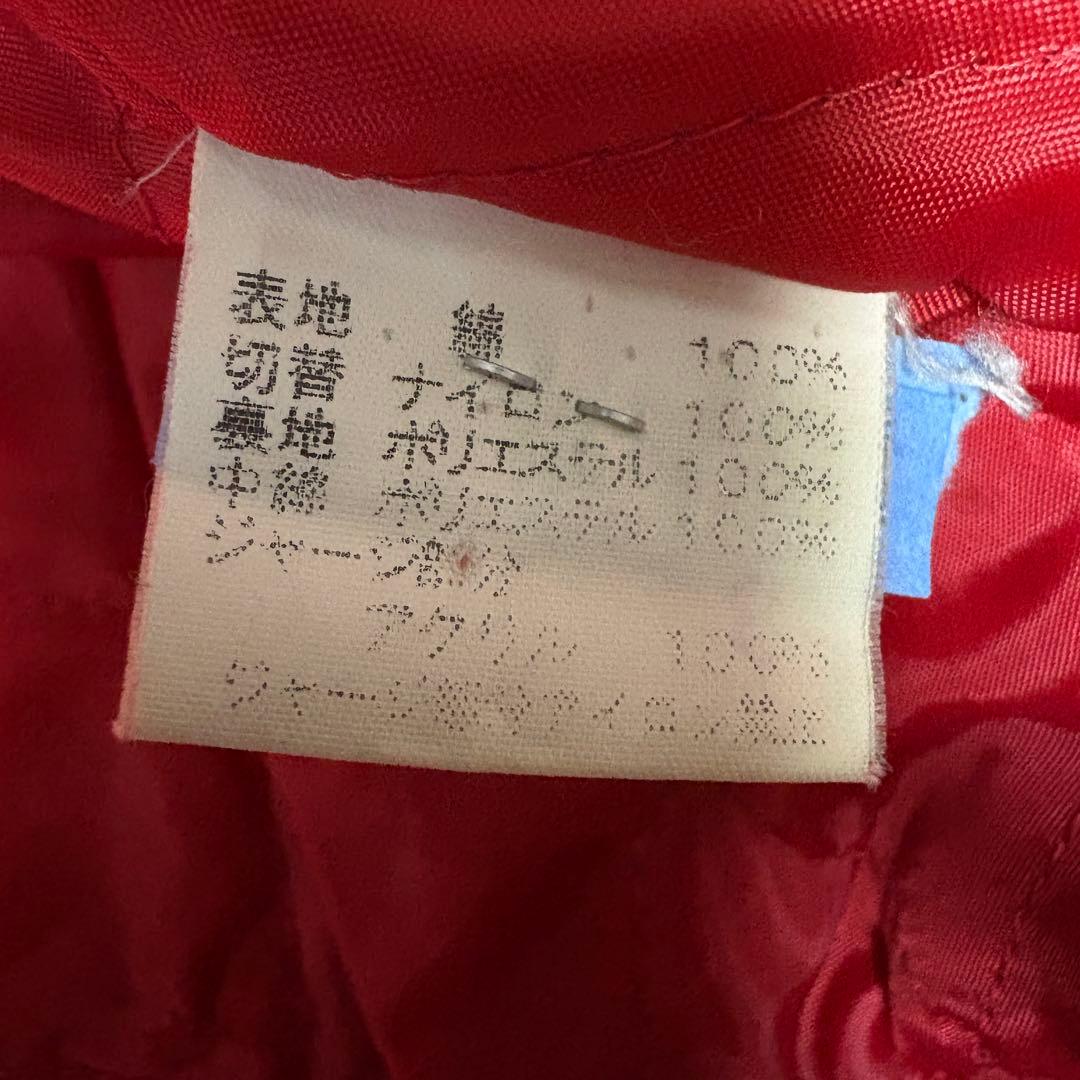 表地 綿 100%
切替 ナイロン 100%
裏地 ポリエステル 100%
中綿 ポリエステル 100%
ジャージ部分
アクリル 100%
ジャージ部分アイロン禁止